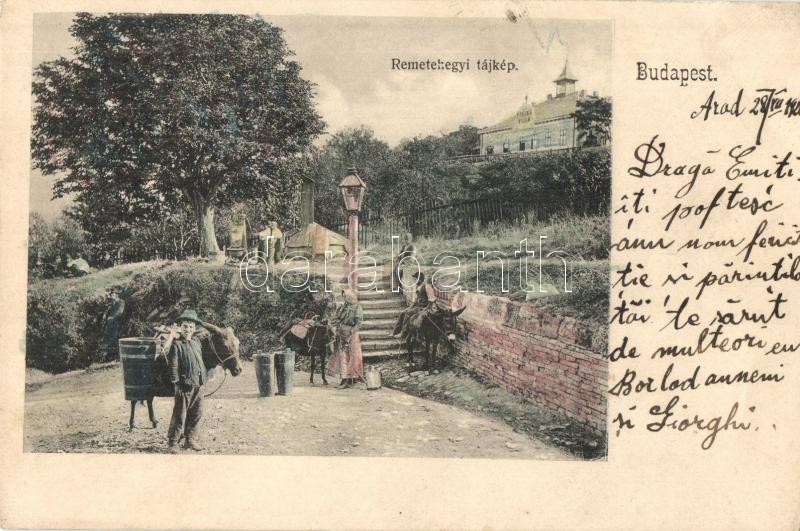 Remetehegyi tájkép.
Budapest.
Arad 28/XII
Dragă Emiti
îti poftesc
ann nou ferici
tie si părintilo
tăi! te sărut
de multeori eu
Borlodanneni
si Giorghi.
darabanth.com